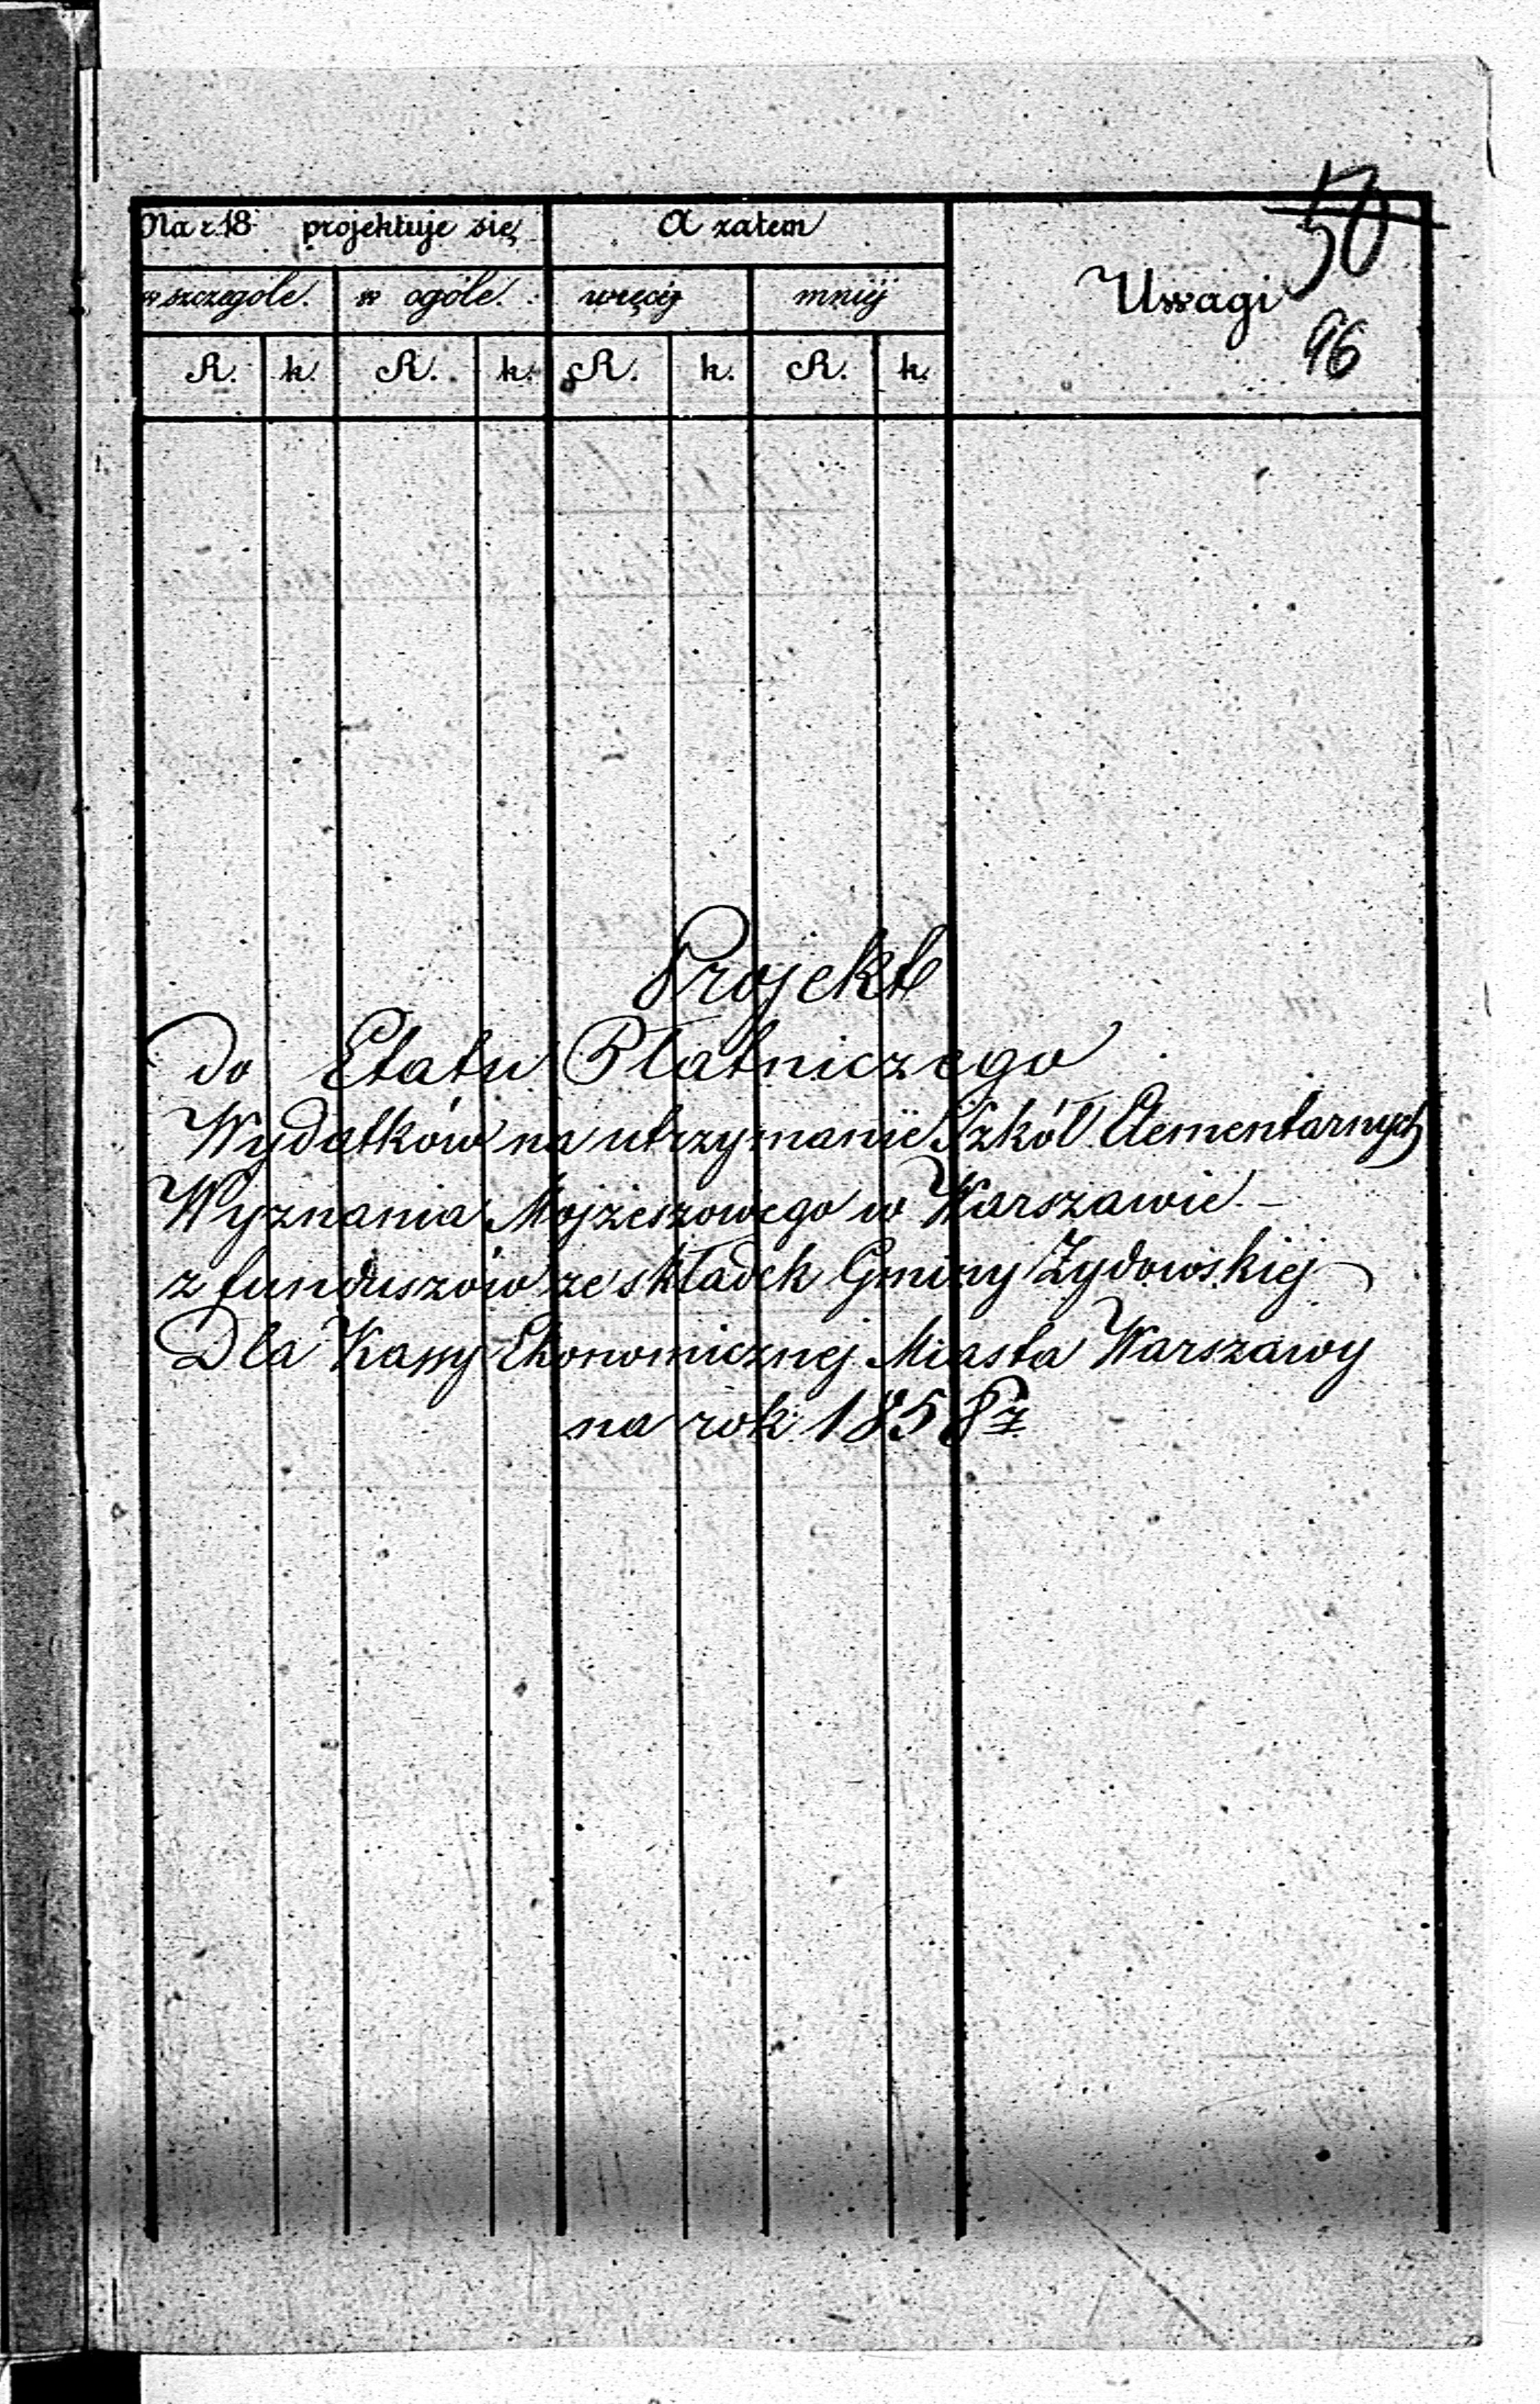 50
Na r. 18 projektuje się A zatem Uwagi
w szczególe. w ogóle. więcéj mniéj
96
R. k. R. k. R. k. R. k.
Projekt
do Etatu Płatniczego
Wydatków na utrzymanie Szkół Elementarnych
Wyznania Mojżeszowego w Warszawie. –
z funduszów ze składek Gminy Żydowskiej
Dla Kassy Ekonomicznej Miasta Warszawy
na rok 1858